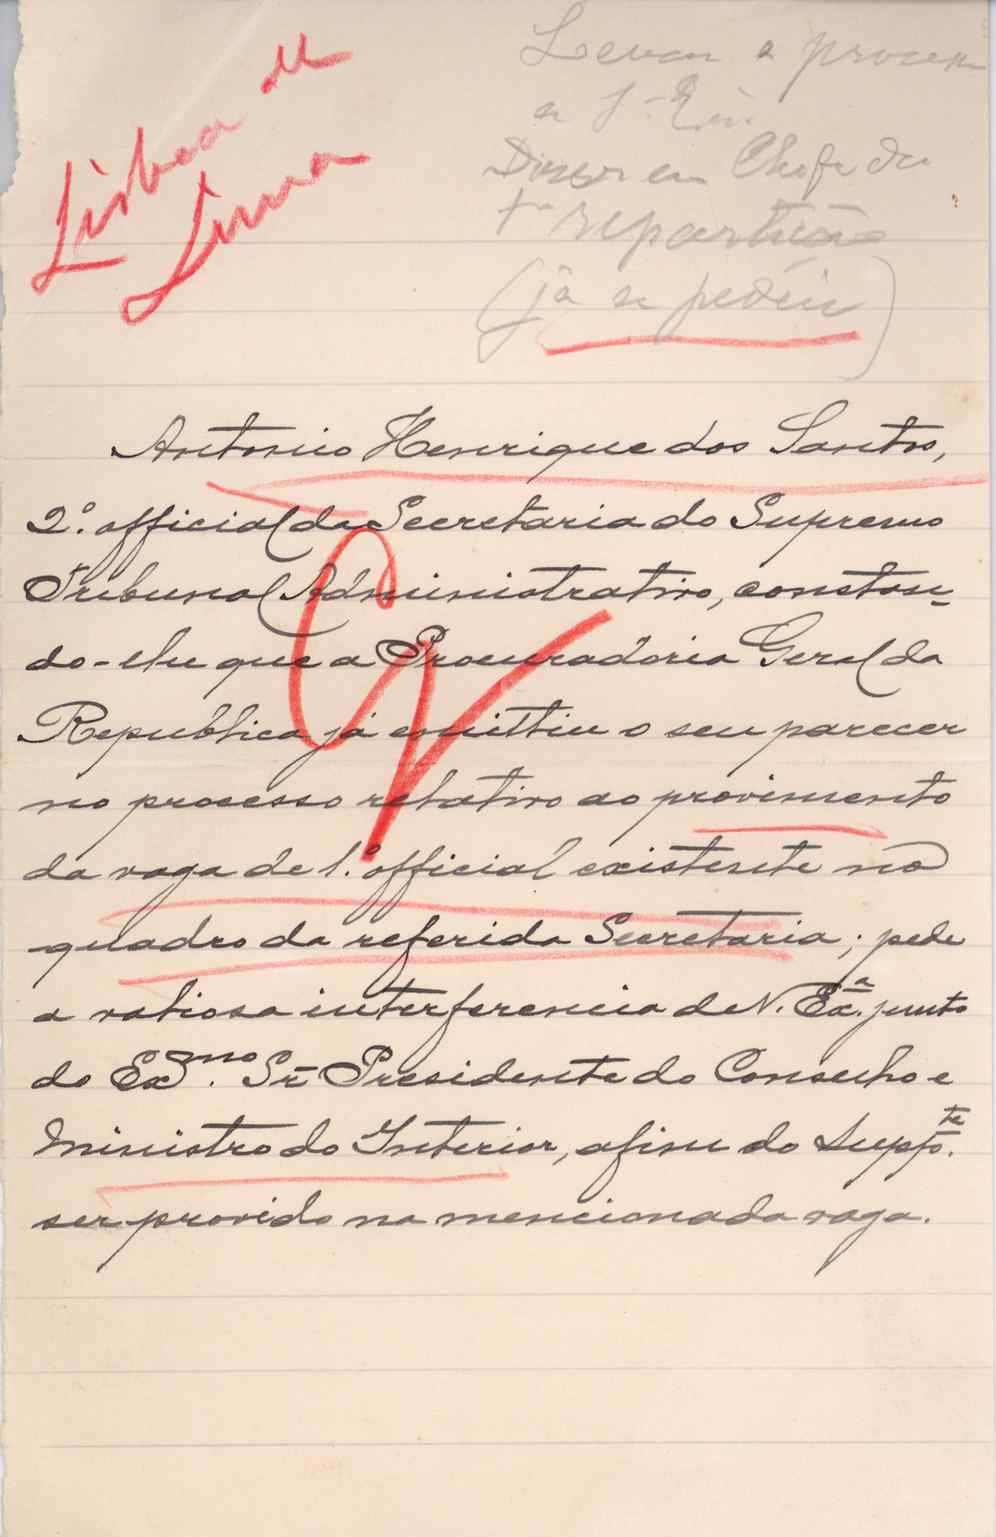 Lisboa de
Lima
Levou o processo
a S. Ex.
Chefe da
1ª repartição
(já se pediu)
Antonio Henrique dos Santos,
2º. official da Secretaria do Supremo
Tribunal Administrativo, constan-
do-lhe que a Procuradoria Geral da
Republica já emittiu o seu parecer
no processo relativo ao provimento
da vaga de 1.º official existente no
quadro da referida Secretaria; pede
a valiosa interferencia de V. Exª. junto
do Exmo. Sr. Presidente do Conselho e
Ministro do Interior, afim do Suppte.
ser provido na mencionada vaga.